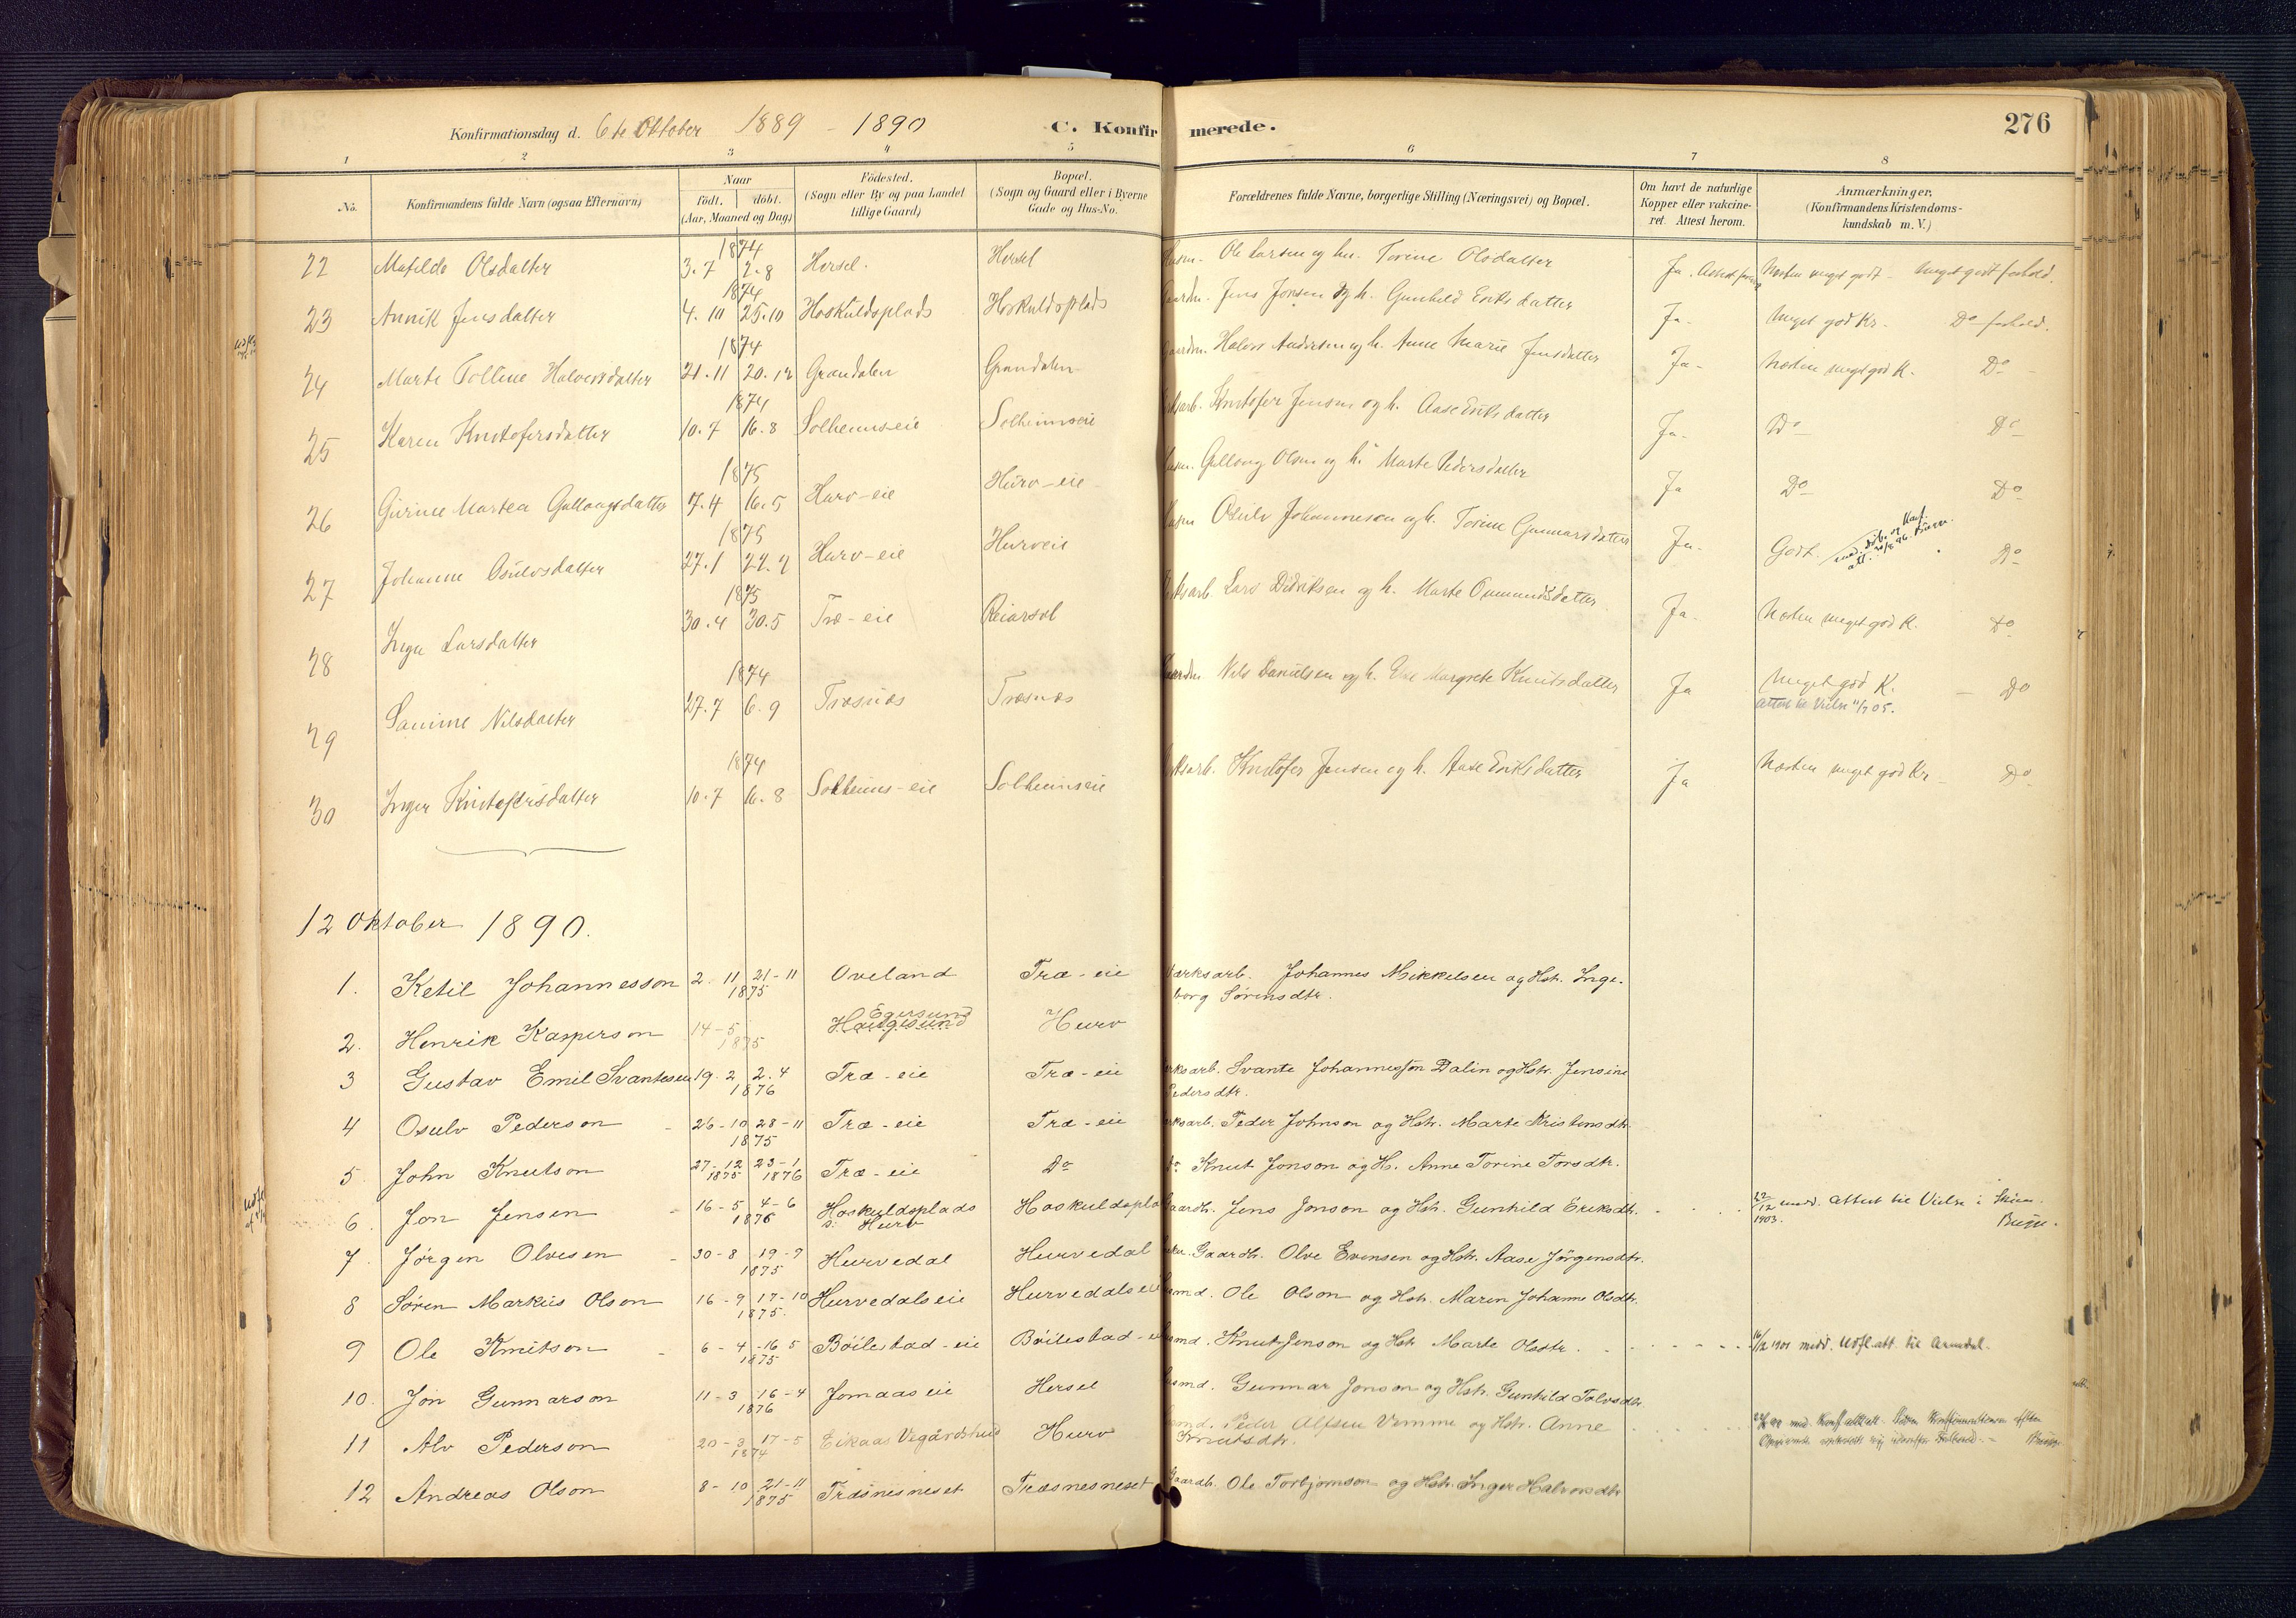 Konfirmationsdag d. 6te Oktober 1889 - 1890 C. Konfirmerede. 276
1 2 3 4 5 6 7 8
No. Konfirmandens fulde Navn (ogsaa Efternavn) Naar födt. döbt. (Aar, Maaned og Dag) Födested. (Sogn eller By og paa Landet tillige Gaard) Bopæl. (Sogn og Gaard eller i Byerne Gade og Hus-No. Forældrenes fulde Navne, borgerlige Stilling (Næringsvei) og Bopæl. Om havt de naturlige Kopper eller vakcineret. Attest herom. Anmærkninger. (Konfirmandens Kristendomskundskab m. V.)
1874
22 Matilde Olsdatter 3.7 2.8 Hersel. Hersel Husm. Ole Larsen og hu. Torine Olsdatter Ja. Næsten meget godt - meget godt forhold.
1874
23 Annik Jensdatter 4.10 25.10 Hoskuldsplads Hoskuldsplads Gaardm. Jens Jonsen og h. Gunhild Eriksdatter Ja- Meget god Kr. Do forhold.
1874
24 Marte Tolline Halvorsdatter 21.11 20.12 Grandalen Grandalen Gaardm. Halvor Andersen og h. Anne Marie Jensdatter Ja- Næsten meget god K. Do -
1874
25 Karen Kristofersdatter 10.7 16.8 Solheimseie Solheimseie Kristofer Jensen og h. Aase Eriksdatter Ja- Do Do
1875
26 Gurine Martea Gullaugsdatter 7.4 16.5 Hurv-eie Hurv-eie Husm. Gullaug Olsen og h. Marte Pedersdatter Ja Do Do
1875
27 Johanne Osulvsdatter 27.1 Hurv-eie Hurveie Husm Osulv Johannesen og h. Torine Gunnarsdatter Ja- Godt. Do
1875
28 Inga Larsdatter 30.4 30.5 Træ-eie Reiarsøl Lars Didriksen og h. Marte Omundsdatter Ja- Næsten meget god K. Do
1874
29 Sanine Nilsdatter 27.7 6.9 Træsnæs Træsnæs Gaardm. Nils Danielsen og h. Margrete Knutsdatter Ja Meget god K. - Do
Attest til Vielse 11/7 05.
1874
30 Inger Kristofersdatter 10.7 16.8 Solheims-eie Solheimseie Kristofer Jensen og h. Aase Eriksdatter Ja Næsten meget god Kr - Do
12 Oktober 1890.
1. Ketil Johannesson 2-11 21-11 Oveland Træ-eie Værksarb. Johannes Mikkelsen og Hstr. Inge-
1875 borg Sørensdtr.
Egersund
2. Henrik Kasperson 14-5 Haugesund Hurv
1875
3 Gustav Emil Svantesen 19.2 2.4 Træ-eie Træ-eie Svante Johannesson Dalin og Hstr. Jensine
1876 Pedersdtr.
4 Osulv Pederson 26-10 28-11 Træ-eie Træ-eie Peder Johnson og Hstr. Marte Kristensdtr.
1875
5 John Knutson 27-12 23-1 Træ-eie Do Do Knut Jonson og H. Anne Torine Torsdtr.
1875 1876
6. Jon Jensen 16-5 4-6 Hoskuldsplads Hoskuldspla Gaardbr. Jens Jonson og Hstr. Gunhild Eriksdtr. 22/12 1903. medd. Attest til Vielse i
1876 s: Hurv
7. Jørgen Olvesen 30-8 19-9 Hurvedal Hurvedal Gaardbr. Olve Evensen og Hstr. Aase Jørgensdtr.
1875
8 Søren Markus Olson 16-9 17-10 Hurvedalseie Hurvedalseie Husmd. Ole Olson og Hstr. Maren Johanne Olsdtr.
1875.
9 Ole Knutson 6-4 16 5 Bøilestad-eie Bøilestad-e Husmd. Knut Jenson og Hstr Marte Olsdtr. 16/2 1901 medd. Udfl.att. til Arendal.
1875
10. Jon Gunnarson 11-3 16-4 Jomaaseie Hersel Husmd. Gunnar Jonson og Hstr. Gunhild Tolvsdtr
1876
11 Alv Pederson 20-3 17-5 Eikaas Vegårdshei Hurv Peder Alfsen Vemme og Hstr. Anne
1874 Knutsdtr.
12 Andreas Olson 8-10 21-11 Træsnesneset Træsnesneset Gaardb. Ole Torbjørnson og Hstr. Inger Halvorsdtr
1875